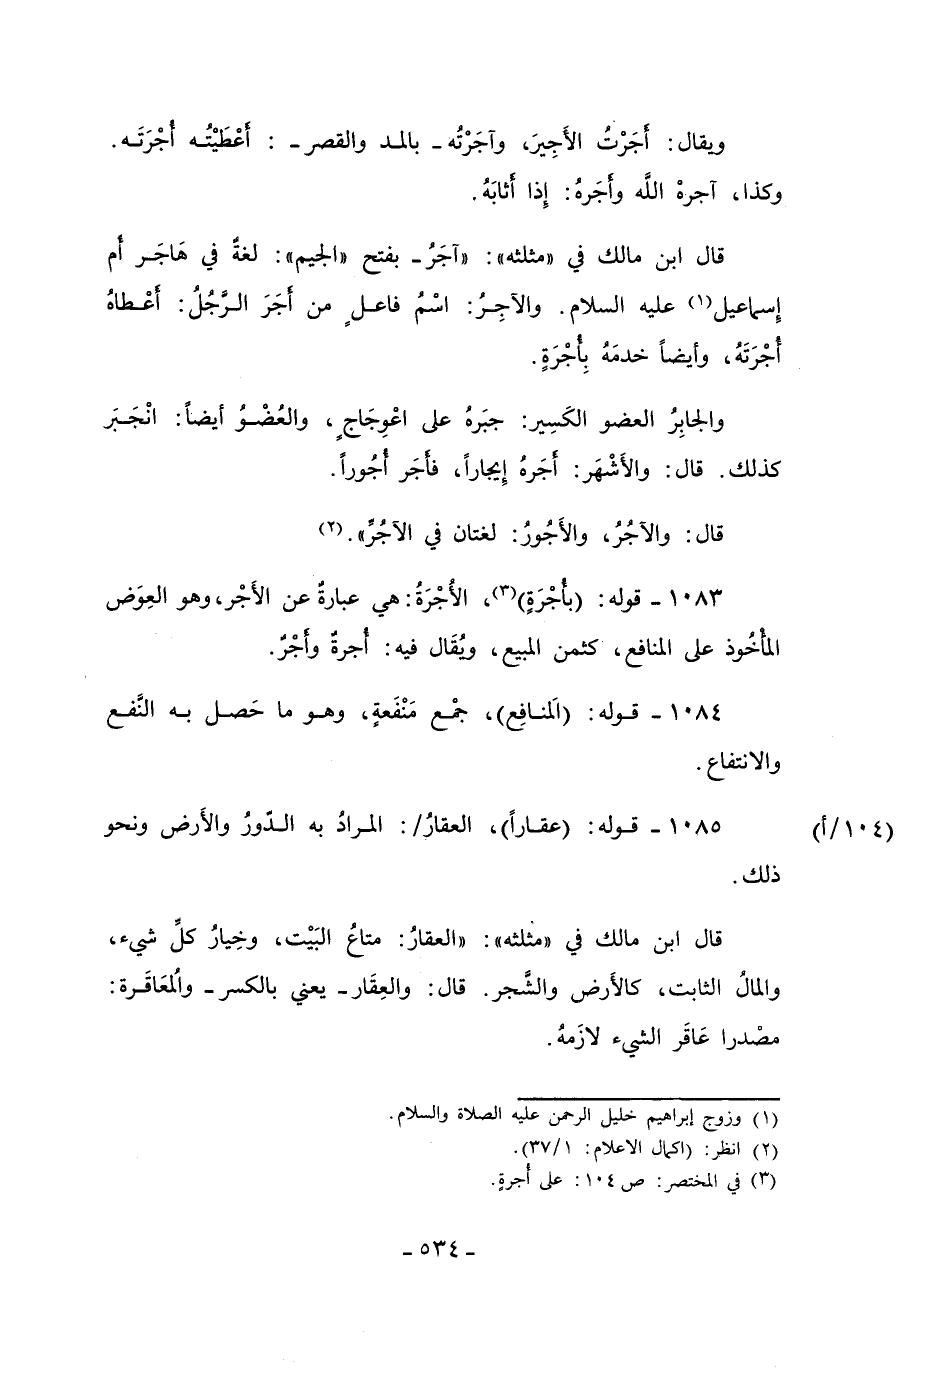 ويقال: أَجَرْتُ الأَجِيرَ، وآجَرْتُه ـ بالمد والقصر ـ : أَعْطَيْتُـه أُجْرَتَـه.
وكذا، آجرهْ اللَّه وأَجَرهُ: إِذا أَثابَهُ.
قال ابن مالك في «مثلثه»: «آجَرُ ـ بفتح «الجيم»: لغةٌ في هَاجَـر أُم
إِسماعيل(١) عليه السلام. والآجِـرُ: اسْمُ فاعـلٍ من أَجَرَ الـرَّجُلُ: أَعْـطاهُ
أُجْرَتَهُ، وأيضاً خدمَهُ بِأُجْرَةٍ.
والجابِرُ العضو الكَسِير: جبَرهُ على اعْوِجَاجٍ، والعُضْـوُ أيضاً: انْجَبَر
كذلك. قال: والأَشْهَر: أَجَرهُ إِيجاراً، فأَجَر أُجُوراً.
قال: والآجُرُ، والأَجُورُ: لغتان في الآجُرِّ».(٢)
١٠٨٣ ـ قوله: (بأُجْرَةٍ)(٣)، الأُجْرَةُ: هي عبارةٌ عن الأَجْر، وهو العِوَض
المأْخُوذ على المنافع، كثمن المبيع، ويُقَال فيه: أُجرةٌ وأَجْرٌ.
١٠٨٤ ـ قـوله: (اَلمنـافِع)، جمْع مَنْفَعةٍ، وهـو ما حَصـل بـه النَّفـع
والانتفاع.
(١٠٤/أ) ١٠٨٥ ـ قـوله: (عقـاراً)، العقارُ/: المـرادُ به الـدّورُ والأَرض ونحو
ذلك.
قال ابن مالك في «مثلثه»: «العقارُ: متاعُ البَيْت، وخِيارُ كلِّ شيء،
والمالُ الثابت، كالأَرض والشَّجر. قال: والعِقَار ـ يعني بالكسر ـ والُمعَاقَـرة:
مصْدرا عَاقَر الشيء لازَمهُ.
(١) وزوج إبراهيم خليل الرحمن عليه الصلاة والسلام.
(٢) انظر: (اكمال الاعلام: ٣٧/١).
(٣) في المختصر: ص ١٠٤: على أُجرةٍ.
ـ ٥٣٤ ـ